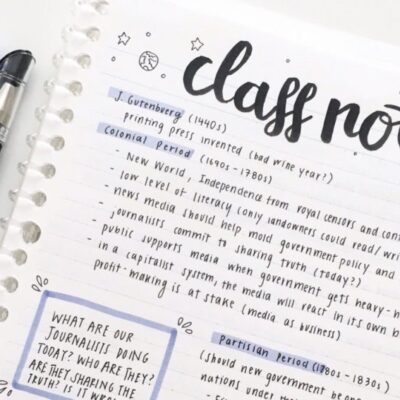 class no
J. Gutenberg (1440s)
printing press invented (bad wine year?)
Colonial Period (1690s - 1780s)
- New World, Independence from royal censors and con
- low level of literacy (only landowners could read/wri
- news media should help mold government policy and
- journalists commit to sharing truth (today?)
- public supports media when government gets heavy-h
- in a capitalist system, the media will react in its own b
profit-making is at stake (media as business)
WHAT ARE OUR
JOURNALISTS DOING
TODAY? WHO ARE THEY?
ARE THEY SHARING THE
TRUTH? IS IT
Partisian Period (1780s - 1830s)
(should new government be on
nations under th